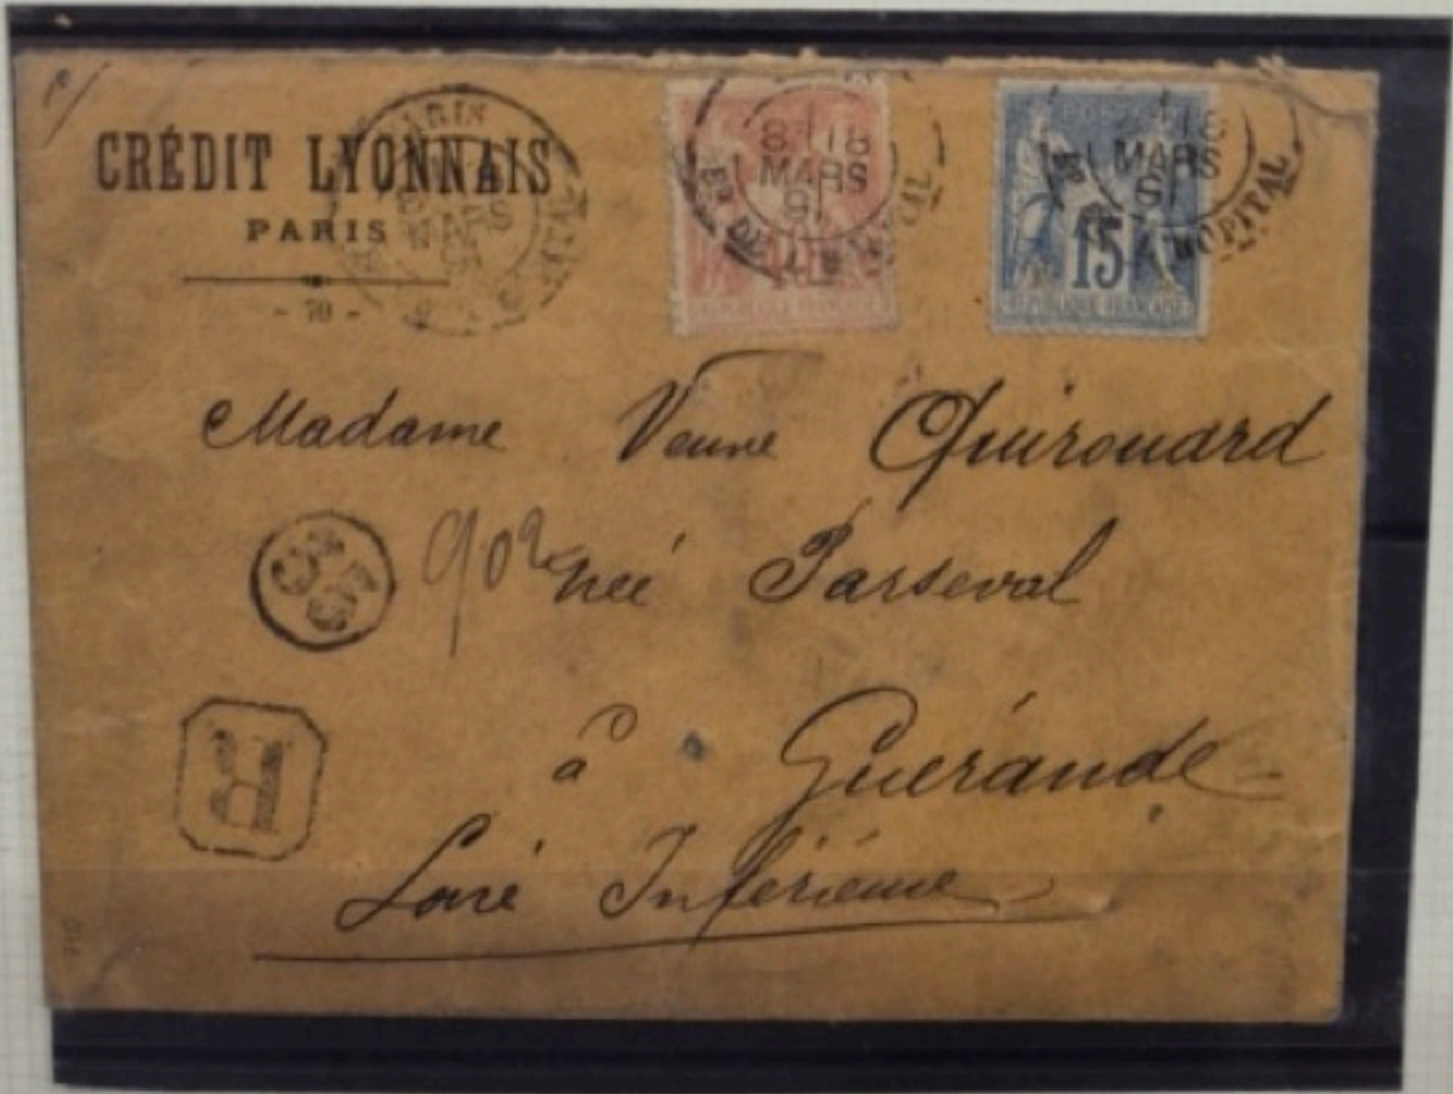 CRÉDIT LYONNAIS
PARIS
- 70 -
PARIS
MARS
91
8 18
MARS
91
Bᴅ DE L'HOPITAL
POSTES
18
MARS
91
Bᴅ DE L'HOPITAL
15
RÉPUBLIQUE FRANÇAISE
Madame Veuve Quirouard
335
née Parseval
R
à Guérande
Loire Inférieure